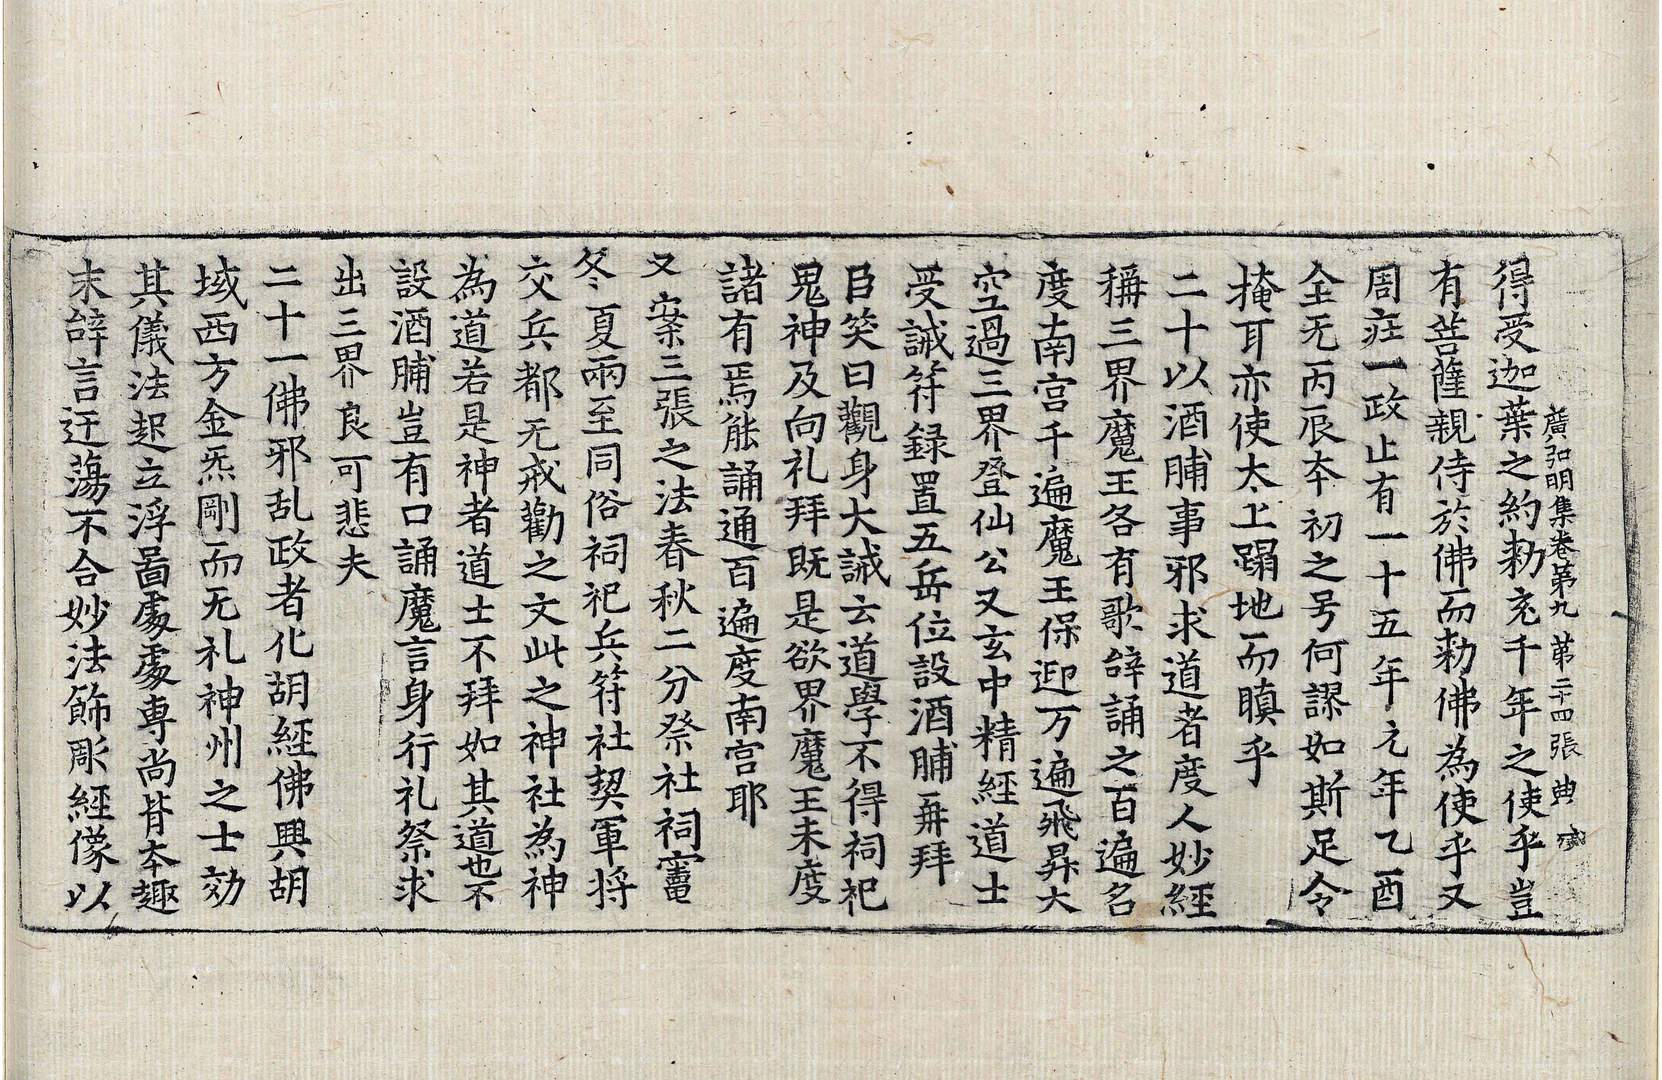 廣弘明集卷第九 第二十四張 典
得受迦葉之約勑充千年之使乎豈
有菩薩親侍於佛而勑佛為使乎又
周㽵一政止有一十五年元年乙酉
全无丙辰夲初之号何謬如斯足令
掩耳亦使太上蹋地而瞋乎
二十以酒脯事邪求道者度人妙經
稱三界魔王各有歌辝誦之百遍名
度南宫千遍魔王保迎万遍飛昇太
空過三界登仙公又玄中精經道士
受誡符録置五岳位設酒脯再拜
臣笑曰觀身大誡云道學不得祠祀
鬼神及向礼拜既是欲界魔王未度
諸有焉能誦通百遍度南宫耶
又案三張之法春秋二分祭社祠竈
冬夏兩至同俗祠祀兵符社契軍将
交兵都无戒勸之文此之神社為神
為道若是神者道士不拜如其道也不
設酒脯豈有口誦魔言身行礼祭求
出三界良可悲夫
二十一佛邪乱政者化胡經佛興胡
域西方金炁剛而无礼神州之士効
其儀法起立浮啚處處専尚背夲趣
末辝言迂蕩不合妙法飾彫經像以